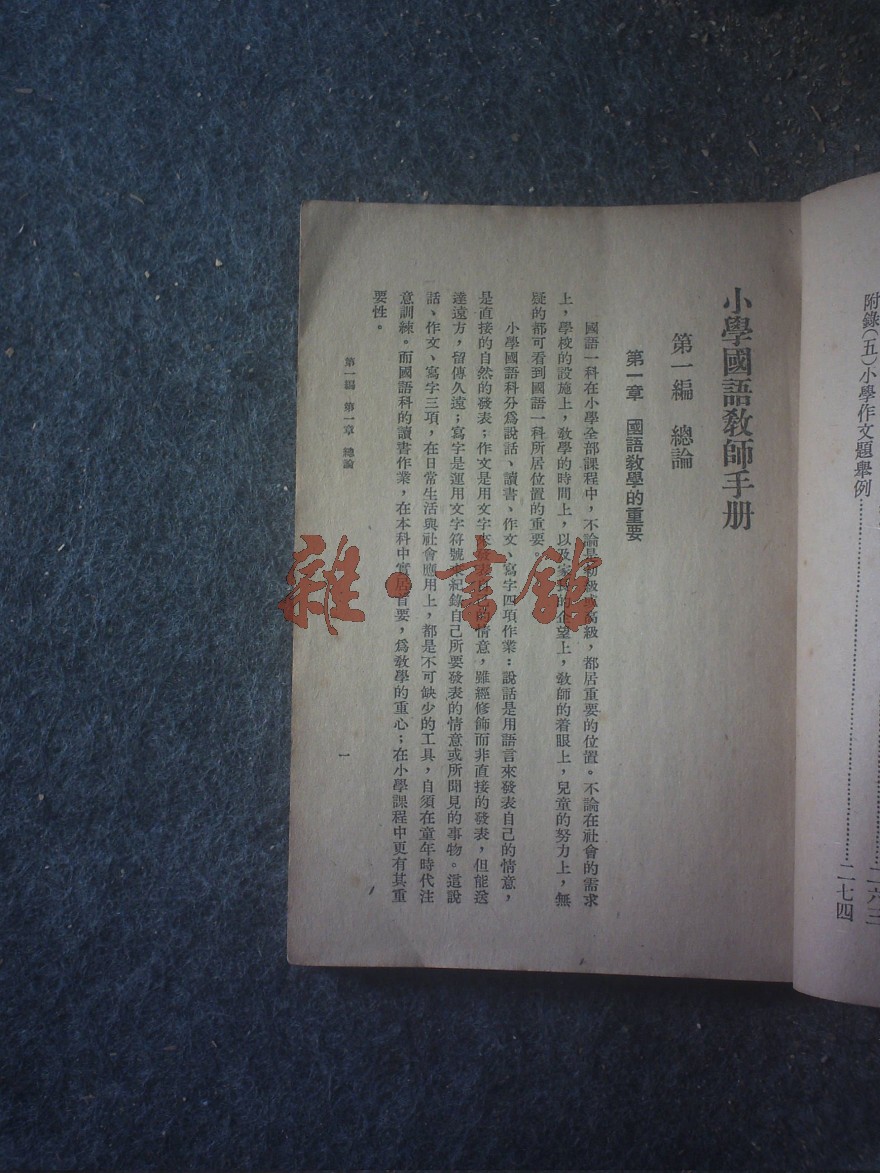 附錄(五)小學作文題舉例……二七四
小學國語教師手册
第一編 總論
第一章 國語教學的重要
國語一科在小學全部課程中，不論是初級或高級，都居重要的位置。不論在社會的需求
上，學校的設施上，教學的時間上，以及家長的企望上，教師的着眼上，兒童的努力上，無
疑的都可看到國語一科所居位置的重要。
小學國語科分爲說話、讀書、作文、寫字四項作業：說話是用語言來發表自己的情意，
是直接的自然的發表；作文是用文字來發表自己的情意，雖經修飾而非直接的發表，但能送
達遠方，留傳久遠；寫字是運用文字符號來紀錄自己所要發表的情意或所聞見的事物。這說
話、作文、寫字三項，在日常生活與社會應用上，都是不可缺少的工具，自須在童年時代注
意訓練。而國語科的讀書作業，在本科中實居首要，爲教學的重心；在小學課程中更有其重
要性。
第一編 第一章 總論
一
雜·書館